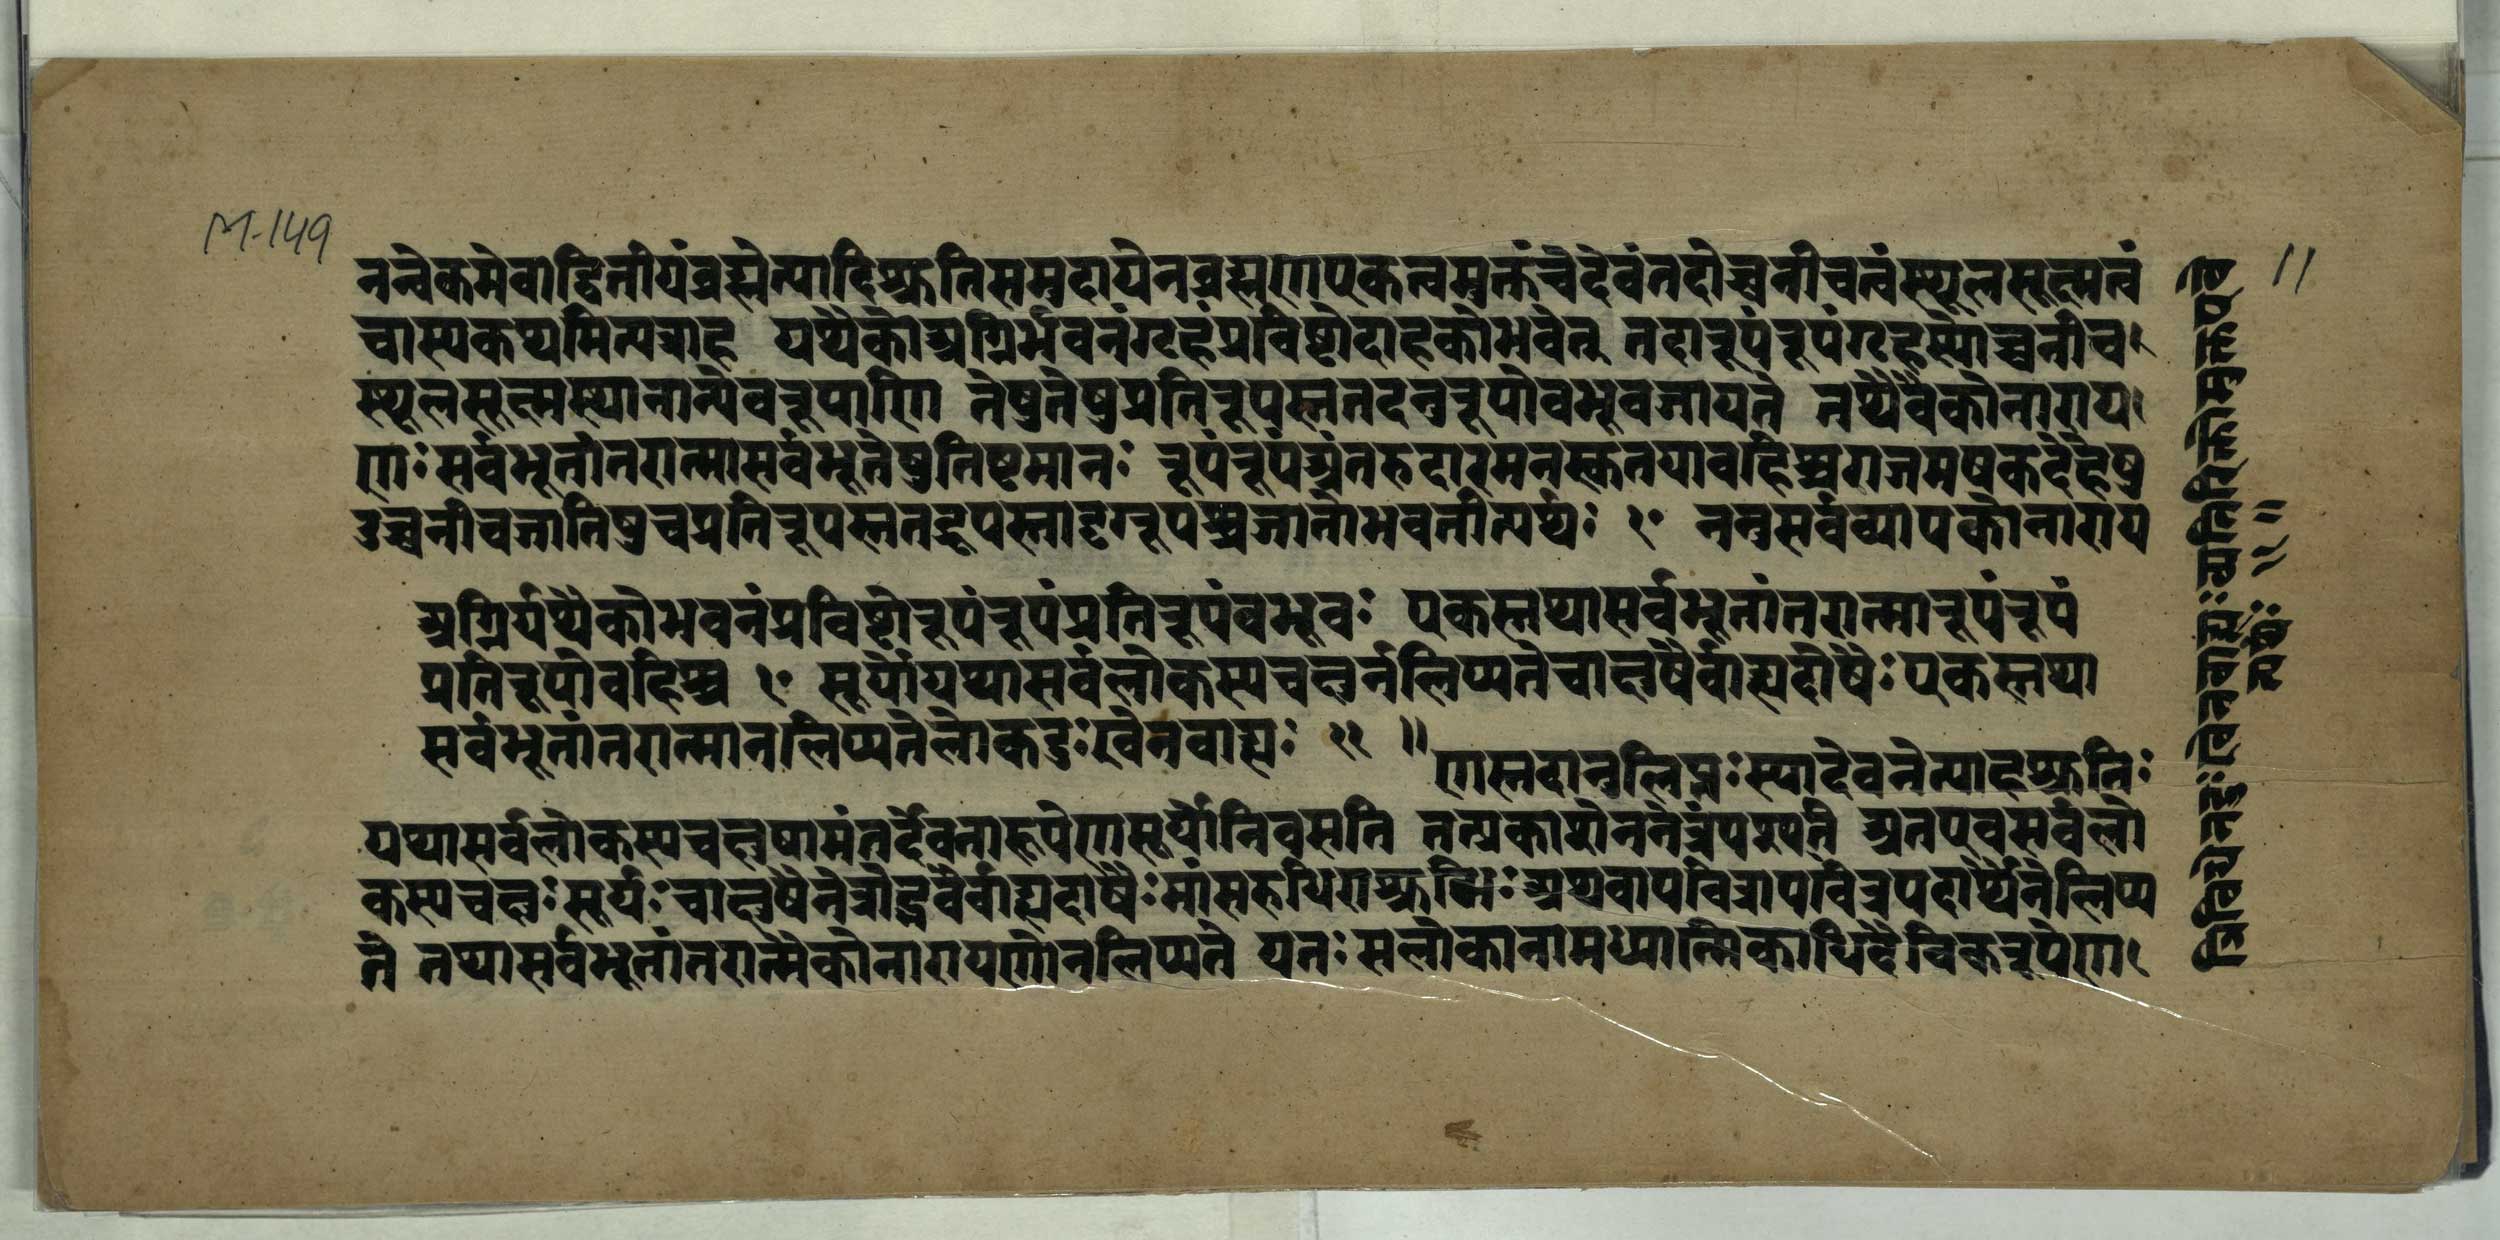 M-149
11
नन्वेकमेवाद्वितीयंब्रह्मेत्यादिश्रुतिसमुदायेनब्रह्मणएकत्वमुक्तंचेदेवंतदोच्चनीचत्वंस्थूलसूक्ष्मत्वं
चास्यकथमित्यत्राह यथैकोअग्निर्भवनंगृहंप्रविष्टोदाहकोभवेत् तदारूपंरूपंगृहस्योच्चनीच
स्थूलसूक्ष्मस्थानान्येवरूपाणि तेषुतेषुप्रतिरूपस्ततदनुरूपोबभूवजायते तथैवैकोनाराय
णः सर्वभूतांतरात्मासर्वभूतेषुतिष्टमानः रूपंरूपंअंत
उच्चनीचजातिषुचप्रतिरूपस्ततद्रूपस्तादृग्रूपश्चजातोभवतीत्यर्थः १० ननुसर्वव्यापकोनाराय
अग्निर्यथैकोभवनंप्रविष्टोरूपंरूपंप्रतिरूपंबभूवः एकस्तथासर्वभूतांतरात्मारूपंरूपं
प्रतिरूपोबहिश्च १० सूर्योयथासर्वलोकस्यचक्षुर्नलिप्यतेचाक्षुषैर्बाह्यदोषैः एकस्तथा
सर्वभूतांतरात्मानलिप्यतेलोकदुःखेनबाह्यः ११ ॥
णस्तदानुलिप्तः स्यादेवनेत्याहश्रुतिः
यथासर्वलोकस्यचक्षुषामंतर्देवतारूपेणसूर्योनिवसति तत्प्रकाशेननेत्रंपश्यते अतएवसर्वलो
कस्यचक्षुः सूर्यः चाक्षुषैनेत्रोद्भवैर्बाह्यदोषैः मांसरुधिराश्रुभिः अथवापवित्रापवित्रपदार्थैर्नलिप्य
ते तथासर्वभूतांतरात्मैकोनारायणोनलिप्यते यतः सलोकानामध्यात्मिकाधिदैविकरूपेण